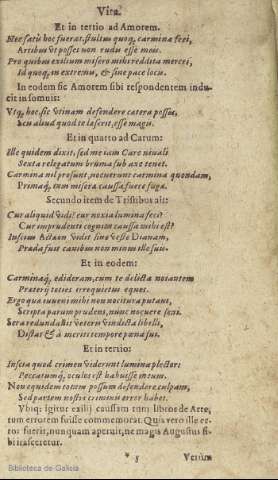 Vita.
Et in tertio ad Amorem.
Nec satis hoc fuerat. stultus quoq, carmina feci,
Artibus ut posses non rudis esse meis.
Pro quibus exilium misero mihi reddita merces,
Id quoq, in extremis, & sine pace locis.
In eodem sic Amorem sibi respondentem indu-
cit in somnis:
Utq, hoc, sic utinam defendere cætera posses,
Scis aliud quod te læserit, esse magis.
Et in quarto ad Carum:
Ille quidem dixit, sed me iam Care niuali
Sexta relegatum bruma sub axe tenet.
Carmina nil prosunt, nocuerunt carmina quondam,
Primaq, tam miseræ caussa fuere fugæ.
Secundo item de Tristibus ait:
Cur aliquid vidi? cur noxia lumina feci?
Cur imprudenti cognita caussa mihi est?
Inscius Actæon vidit sine veste Dianam,
Præda fuit canibus non minus ille suis.
Et in eodem:
Carminaq, edideram, cum te delicta notantem
Præterij toties irrequietus eques.
Ergo quæ iuueni mihi non nocitura putaui,
Scripta parum prudens, nunc nocuere seni.
Sera redundauit veteris vindicta libelli,
Distat & à meriti tempore pœna sui.
Et in tertio:
Inscia quod crimen viderunt lumina plector:
Peccatumq, oculos est habuisse meum.
Non equidem totam possum defendere culpam,
Sed partem nostri criminis error habet.
Vbiq; igitur exilij caussam tum libros de Arte,
tum errorem fuisse commemorat. Quis vero ille er-
ror fuerit, nunquam aperuit, ne magis Augustus si-
bi irasceretur.
* 5
Verùm
Biblioteca de Galicia